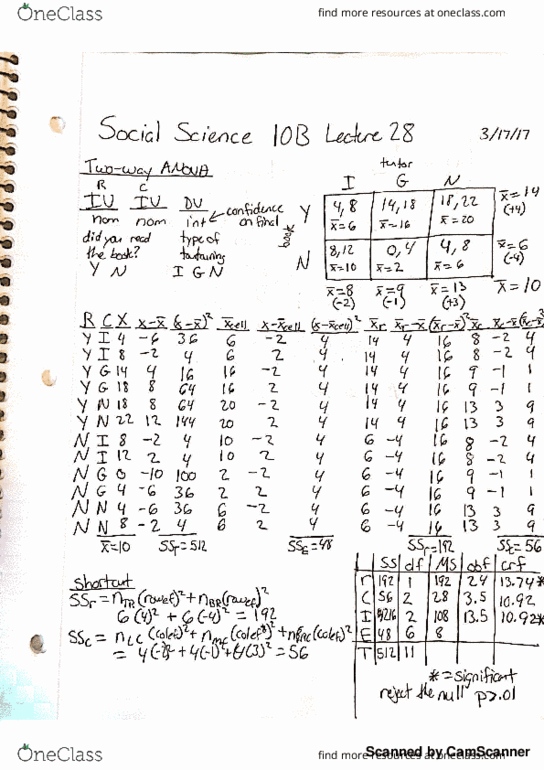 OneClass
find more resources at oneclass.com
Social Science 10B Lecture 28 3/17/17
Two-way ANOVA
tutor
R C
I G N
IU IU DU
nom nom int confidence on final
did you read the book? type of tutoring
Y N I G N
book
Y 4, 8 14, 18 18, 22 x̄=14
x̄=6 x̄=16 x̄=20 (+4)
N 8, 12 0, 4 4, 8 x̄=6
x̄=10 x̄=2 x̄=6 (-4)
x̄=8 x̄=9 x̄=13 x̄=10
(-2) (-1) (+3)
R C X x-x̄ (x-x̄)² x̄cell x-x̄cell (x-x̄cell)² x̄r x̄r-x̄ (x̄r-x̄)² x̄c x̄c-x̄ (x̄c-x̄)²
Y I 4 -6 36 6 -2 4 14 4 16 8 -2 4
Y I 8 -2 4 6 2 4 14 4 16 8 -2 4
Y G 14 4 16 16 -2 4 14 4 16 9 -1 1
Y G 18 8 64 16 2 4 14 4 16 9 -1 1
Y N 18 8 64 20 -2 4 14 4 16 13 3 9
Y N 22 12 144 20 2 4 14 4 16 13 3 9
N I 8 -2 4 10 -2 4 6 -4 16 8 -2 4
N I 12 2 4 10 2 4 6 -4 16 8 -2 4
N G 0 -10 100 2 -2 4 6 -4 16 9 -1 1
N G 4 -6 36 2 2 4 6 -4 16 9 -1 1
N N 4 -6 36 6 -2 4 6 -4 16 13 3 9
N N 8 -2 4 6 2 4 6 -4 16 13 3 9
x̄=10 SST=512 SSE=48 SSr=192 SSc=56
shortcut
SSr = nTR(rowef)² + nBR(rowef)²
6(4)² + 6(-4)² = 192
SSc = nLC(colef)² + nMC(colef)² + nRC(colef)²
= 4(-2)² + 4(-1)² + 4(3)² = 56
SS df MS obf crf
r 192 1 192 24 13.74*
C 56 2 28 3.5 10.92
I 216 2 108 13.5 10.92*
E 48 6 8
T 512 11
*=significant
reject the null p>.01
OneClass
find more resources at oneclass.com
Scanned by CamScanner